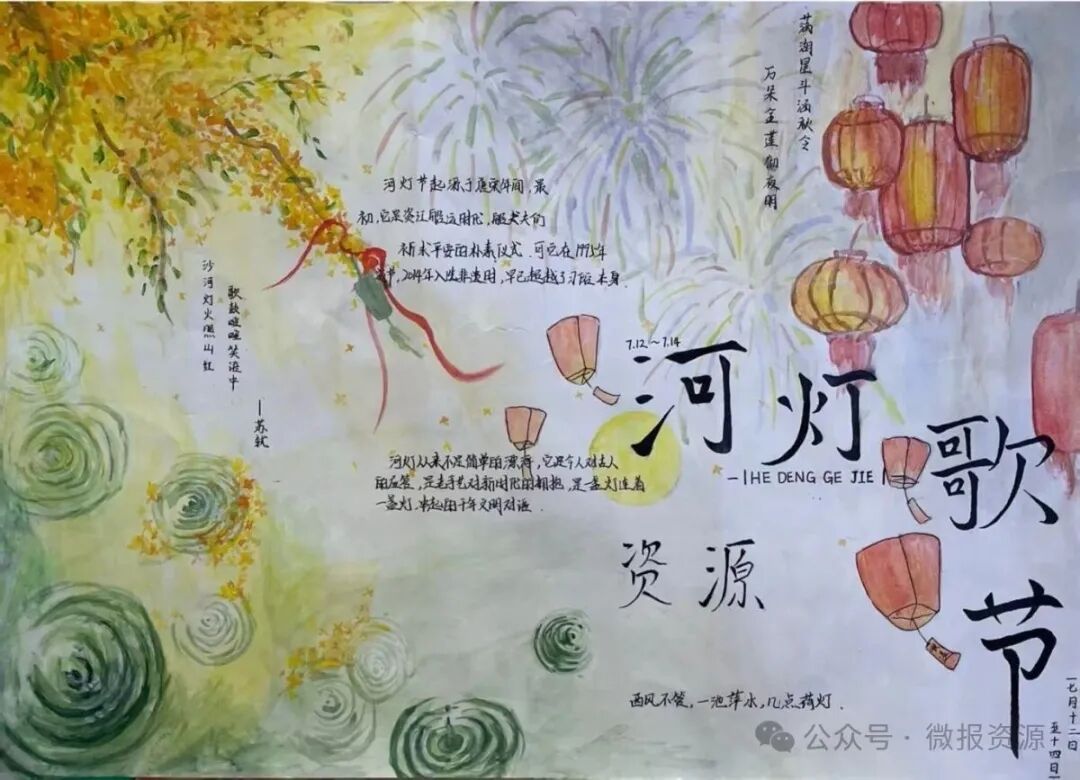 满湖星斗涵秋冷
万朵金莲彻夜明
河灯节起源于唐宋年间，最
初，它是资江船运时代，船夫夫们
祈求平安的朴素仪式.可它在1993年
节，2014年入选非遗时，早已超越了习俗本身.
沙河灯火照山红
歌鼓喧喧笑语中
—苏轼
7.12.～7.14
河灯歌节
—HE DENG GE JIE
河灯从来不是简单的漂流，它是今人对古人
的应答，是老手艺对新时代的拥抱，是一盏灯连着
一盏灯，串起的千年文明对话.
资源
西风不管，一池萍水，几点荷灯.
七月十二日
至十四日
公众号·微报资源